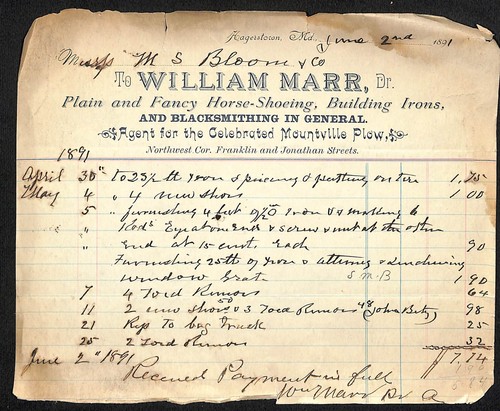 Hagerstown, Md., June 2nd 1891
Messrs M S Bloom & Co
To WILLIAM MARR, Dr.
Plain and Fancy Horse-Shoeing, Building Irons,
AND BLACKSMITHING IN GENERAL.
Agent for the Celebrated Mountville Plow,
Northwest Cor. Franklin and Jonathan Streets.
1891
April 30" to 23½ lb Iron & & putting on tire 1.75
May 4 " 4 new Shoes 1 00
" 5 " furnishing 4 feet of Iron & making 6
" Rods Eye on End & screw & nut at the other
" End at 15 cent. Each 90
Furnishing 25 lb of Iron & altering &
window Grat S M B 1.90
" 7 4 Toed Removs 64
" 11 2 new Shoes 50 & 3 Toed Removs 48 (John Betz) 98
" 21 Rep To bag Truck 25
" 25 2 Toed Removs 32
June 2" 1891 $7.74
Received Payment in full
Wm Marr Per A